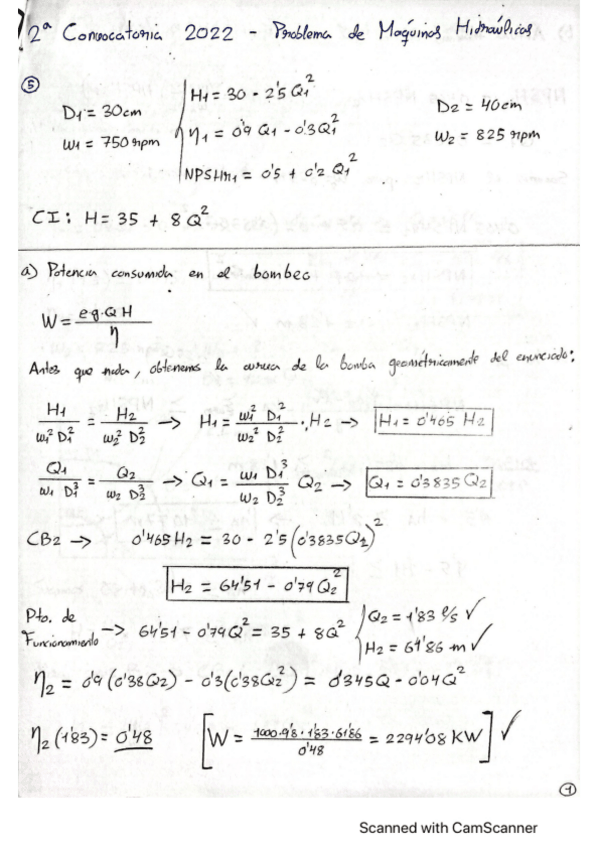 2ª Convocatoria 2022 - Problema de Máquinas Hidraúlicas
⑤
D1 = 30cm
ω1 = 750 rpm
H1 = 30 - 2'5 Q1²
η1 = 0'9 Q1 - 0'3 Q1²
NPSHr1 = 0'5 + 0'2 Q1²
D2 = 40cm
ω2 = 825 rpm
CI: H = 35 + 8 Q²
a) Potencia consumida en el bombeo
W = ρg·QH / η
Antes que nada, obtenemos la curva de la bomba geométricamente del enunciado:
H1 / ω1² D1² = H2 / ω2² D2² → H1 = ω1² D1² / ω2² D2² · H2 → H1 = 0'465 H2
Q1 / ω1 D1³ = Q2 / ω2 D2³ → Q1 = ω1 D1³ / ω2 D2³ Q2 → Q1 = 0'3835 Q2
CB2 → 0'465 H2 = 30 - 2'5 (0'3835 Q2)²
H2 = 64'51 - 0'79 Q2²
Pto. de Funcionamiento → 64'51 - 0'79 Q² = 35 + 8 Q² { Q2 = 1'83 l/s ✓
H2 = 61'86 m ✓
η2 = 0'9 (0'38 Q2) - 0'3 (0'38 Q2²) = 0'345 Q - 0'04 Q²
η2 (1'83) = 0'48 [ W = 1000·9'8·1'83·61'86 / 0'48 = 2294'08 KW ] ✓
①
Scanned with CamScanner